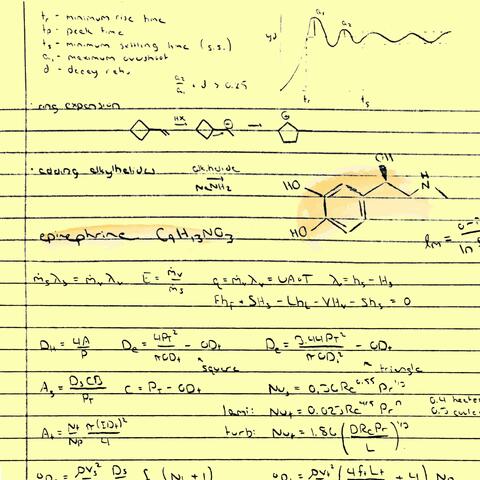 tr - minimum rise time
tp - peak time
ts - minimum settling time (s.s.)
a₁ - maximum overshoot
d - decay ratio
a₂/a₁ = d > 0.25
yd
a₁
a₂
tr
ts
· ring expansion
HX
⊕
G
· adding alkylhalides
alkylhalide
NaNH2
HO
HO
OH
H
N
epinephrine C9H13NO3
lm =
ṁsλs = ṁvλv E = ṁv/ṁs q = ṁvλv = UAΔT λ = hs - Hs
Fhf + SHs - Lhl - VHv - Shs = 0
DH = 4A/P De = 4PT²/πODt - ODt De = 3.44PT²/πODt² - ODt
square
triangle
As = DsCB/PT C = PT - ODt Nus = 0.36Re^0.55 Pr^1/3
lami: Nut = 0.023Re^4/5 Pr^n
At = Nt/Np π(IDt)²/4
turb: Nut = 1.86 (DRePr/L)^1/3